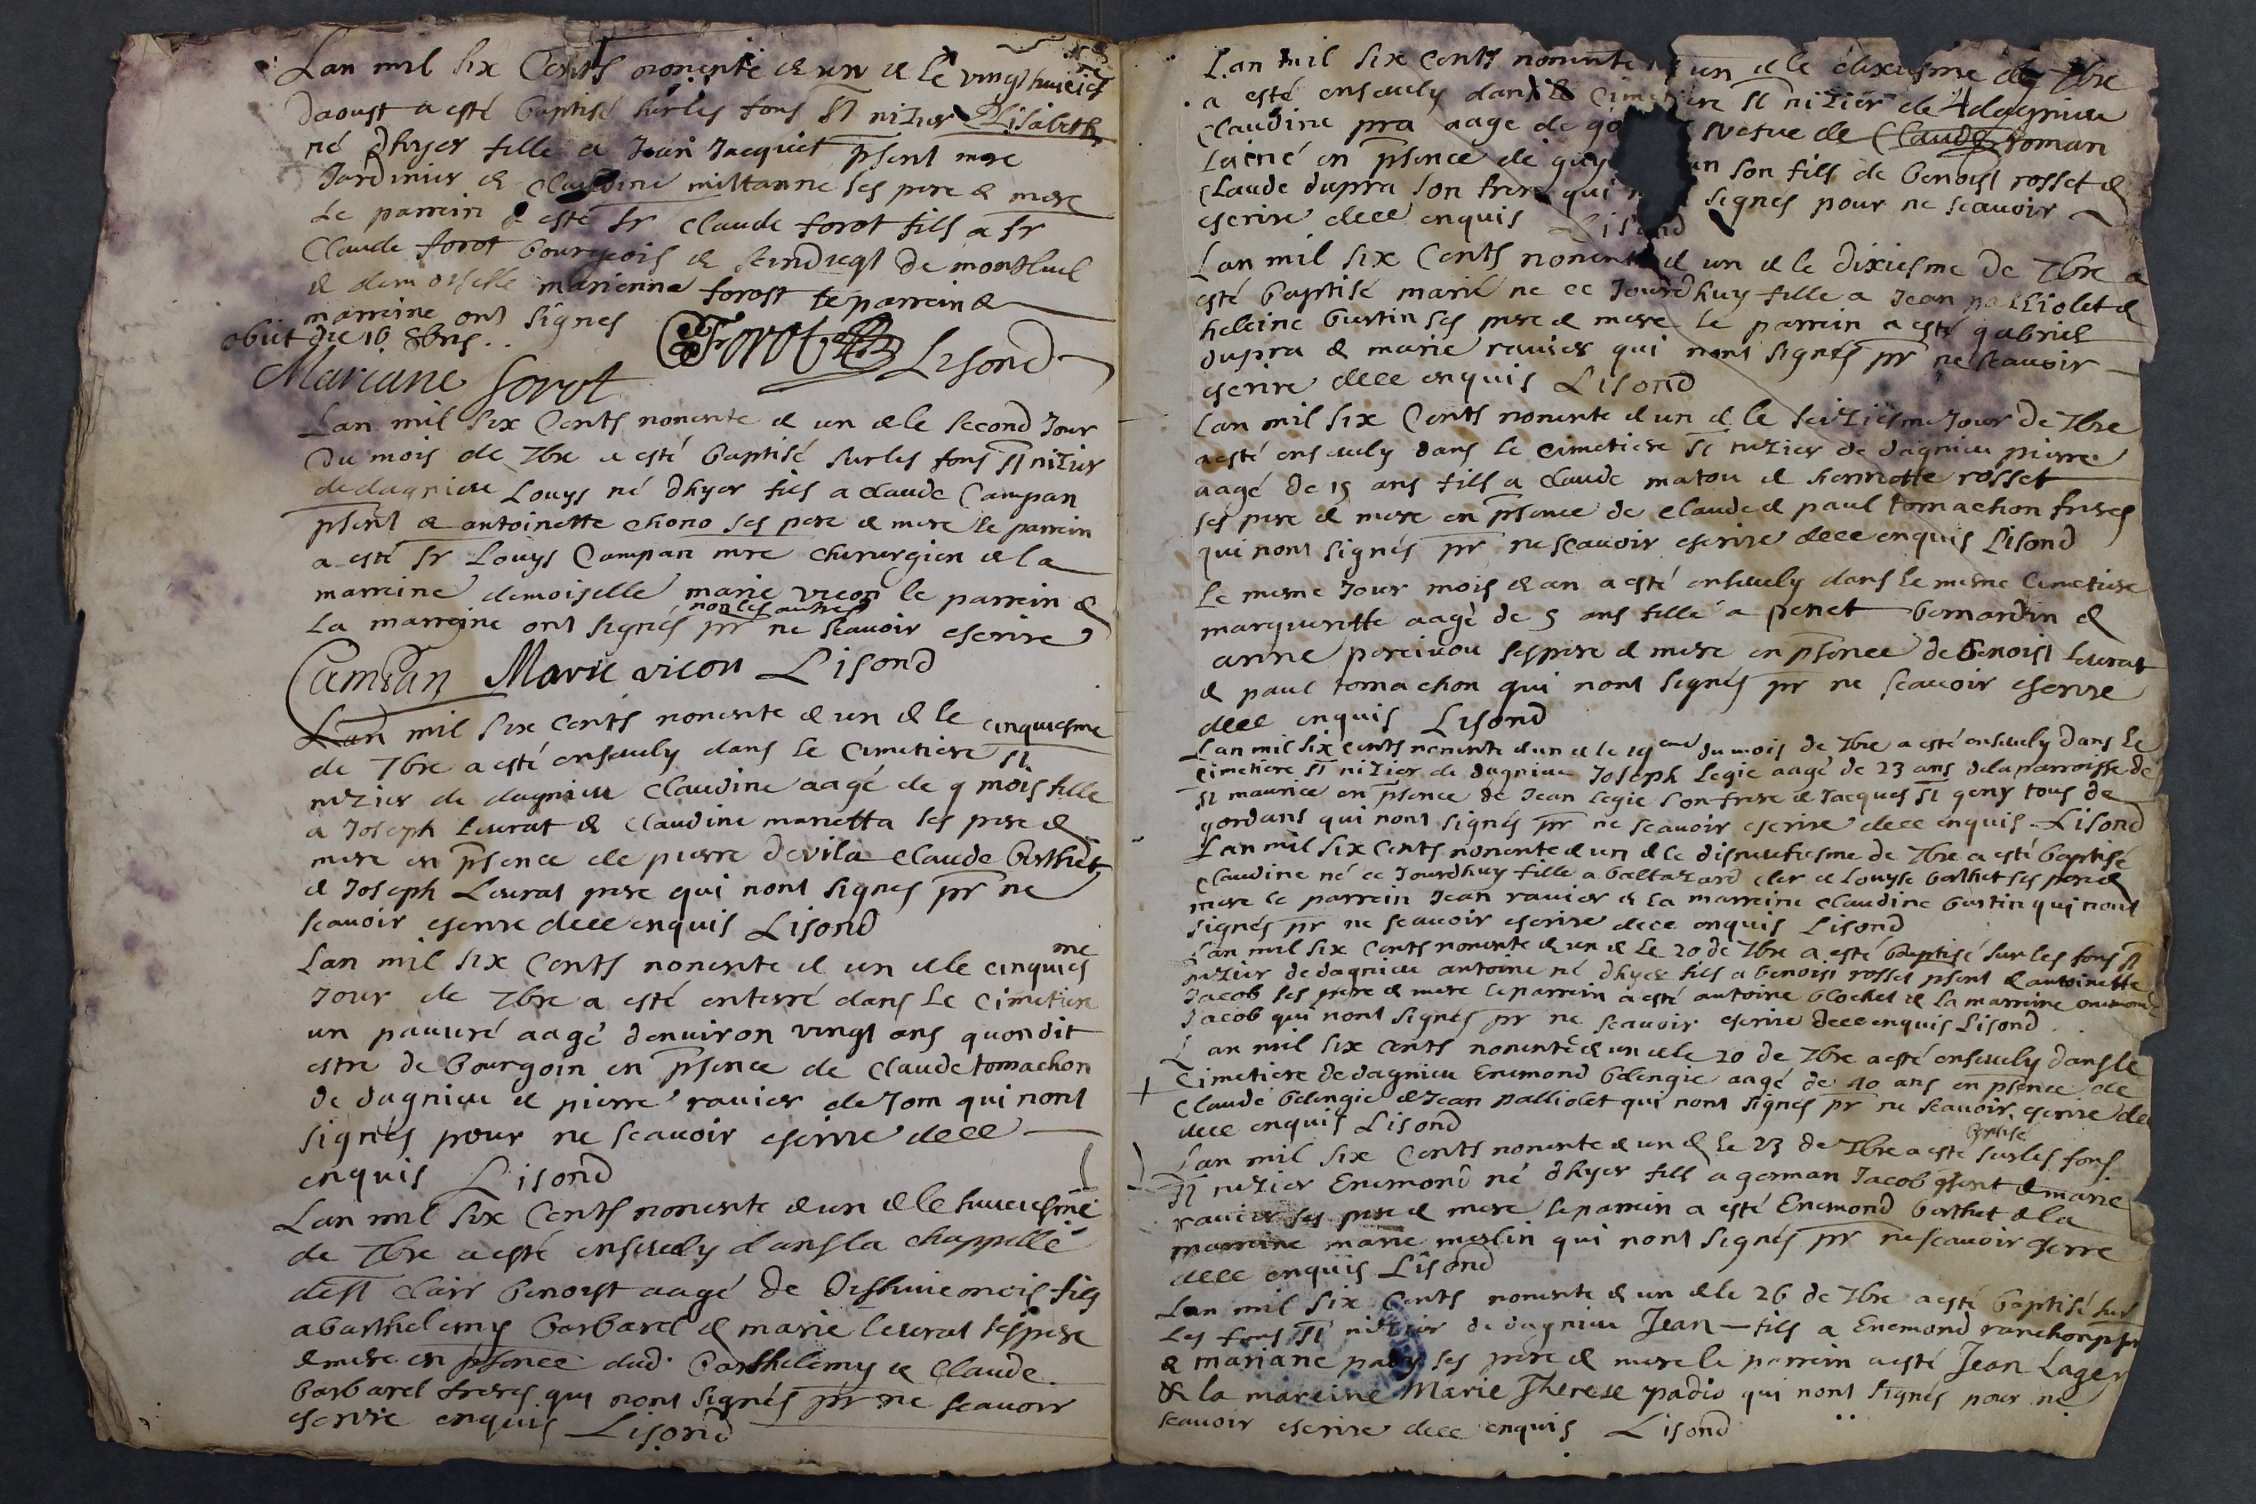 Lan mil six Cents nonente & un & le vingt huicies me
daoust a esté baptisé sur les fons st nizier Elisabeth
né dhyer fille a Jean Jacquet psent mre
Jardinier & Claudine mittanne ses pere & mere
Le parrein a esté sr Claude forot fils a sr
Claude forot bourgeois & scindicqt de montluel
& demoiselle marienne forost le parrein &
marreine ont signés
obiit die 16 8bris
CForot Lisond
Mariane forot
Lan mil six Cents nonente & un & le second Jour
du mois de 7bre a esté baptisé sur les fons st nizier
de dagnieu Louys né dhyer fils a claude Campan
psent & antoinette chono ses pere & mere le parrein
a esté sr Louys Campan mre chirurgien & la
marreine demoiselle marie vicon le parrein &
non les autres
la marreine ont signés pr ne scavoir escrire
Campan Marie vicon Lisond
Lan mil six cents nonente & un & le cinquiesme
de 7bre a esté ensevely dans le cimetiere st
nizier de dagnieu Claudine aagé de 9 mois fille
a Joseph Leurat & Claudine manetta ses pere &
mere en psence de pierre devila Claude berthet
& Joseph Leurat pere qui nont signes pr ne
scavoir escrire deee enquis Lisond
Lan mil six Cents nonente & un & le cinquies me
Jour de 7bre a esté enterré dans le cimetiere
un pauvre aagé denviron vingt ans quondit
estre de bourgoin en psence de claude tomachon
de dagnieu & pierre ravier de Jom qui nont
signés pour ne scavoir escrire deee
enquis Lisond
Lan mil six Cents nonente & un & le huiciesme
de 7bre a esté ensevely dans la chappelle
de st clair benoist aagé de dishuic mois fils
a barthelemy barbarel & marie leurat ses pere
& mere en psence dud. barthelemy & Claude
barbarel freres qui nont signés pr ne scavoir
escrire enquis Lisond
Lan mil six cents nonente & un & le dixiesme de 7bre
a esté ensevely dans le cimetiere st nizier de dagnieu
Claudine pra aage de vefve de Claude roman
en psence de guy son fils de benoist rosset &
Claude dupra son frere qui signés pour ne scavoir
escrire deee enquis Lisond
Lan mil six Cents nonente & un & le dixiesme de 7bre a
esté baptisé marie ne ce Jourdhuy fille a Jean palliolet &
heleine bertin ses pere & mere le parrein a esté gabriel
dupra & marie ravier qui nont signés pr ne scavoir
escrire deee enquis Lisond
Lan mil six Cents nonente & un & le seiziesme Jour de 7bre
a esté ensevely dans le cimetiere st nizier de dagnieu pierre
aagé de 15 ans fils a claude matou & henriette rosset
ses pere & mere en psence de claude & paul tomachon freres
qui nont signés pr ne scavoir escrire deee enquis Lisond
Le mesme Jour mois & an a esté ensevely dans le mesme Cimetiere
margueritte aagé de 5 ans fille a penet bernardin &
anne percivou ses pere & mere en psence de benoist Leurat
& paul tomachon qui nont signés pr ne scavoir escrire
deee enquis Lisond
Lan mil six cents nonente & un & le 19eme du mois de 7bre a esté ensevely dans le
cimetiere st nizier de dagnieu Joseph Legie aagé de 23 ans de la parroisse de
st maurice en psence de Jean Legie son frere & Jacques st geny tous de
gordans qui nont signés pr ne scavoir escrire deee enquis Lisond
Lan mil six Cents nonente & un & le disneufiesme de 7bre a esté baptisé
Claudine né ce Jourdhuy fille a baltazard cler & Louyse berthet ses pere &
mere le parrein Jean ravier & la marreine claudine bertin qui nont
signés pr ne scavoir escrire deee enquis Lisond
Lan mil six Cents nonente & un & le 20 de 7bre a esté baptisé sur les fons st
nizier de dagnieu antoine né dhyer fils a benoist rosset psent & antoinette
Jacob ses pere & mere le parrein a esté antoine blochet & la marreine enemonde
Jacob qui nont signés pr ne scavoir escrire deee enquis Lisond
Lan mil six Cents nonente & un & le 20 de 7bre a esté ensevely dans le
Cimetiere de dagnieu Enemond belengie aagé de 40 ans en psence de
Claude belengie & Jean palliolet qui nont signés pr ne scavoir escrire de
deee enquis Lisond
baptisé
Lan mil six Cents nonente & un & le 23 de 7bre a esté sur les fons
st nizier Enemond né dhyer fils a german Jacob psent & marie
ravier ses pere & mere le parrein a esté Enemond berthet & la
marreine marie merlin qui nont signés pr ne scavoir escrire
deee enquis Lisond
Lan mil six Cents nonente & un & le 26 de 7bre a esté baptisé sur
les fons st nizier de dagnieu Jean fils a Enemond ranchon psnt
& mariane pady ses pere & mere le parrein a esté Jean Lager
& la mareine Marie Therese padio qui nont signés pour ne
scavoir escrire deee enquis Lisond